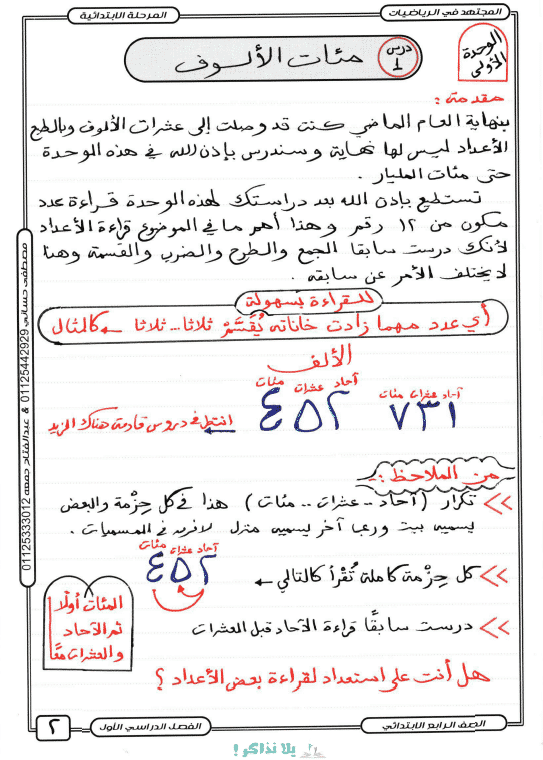 المجتهد في الرياضيات
المرحلة الابتدائية
الوحدة الأولى
درس ١
مئات الألوف
مقدمة :
بنهاية العام الماضي كنت قد وصلت إلى عشرات الألوف وبالطبع
الأعداد ليس لها نهاية وسندرس بإذن الله في هذه الوحدة
حتى مئات المليار .
تستطيع بإذن الله بعد دراستك لهذه الوحدة قراءة عدد
مكون من ١٢ رقم وهذا أهم ما في الموضوع قراءة الأعداد
لأنك درست سابقا الجمع والطرح والضرب والقسمة وهنا
لا يختلف الأمر عن سابقه .
للقراءة بسهولة
أي عدد مهما زادت خاناته يُقَسَّمْ ثلاثا .. ثلاثا ← كالمثال
الألف
آحاد عشرات مئات
آحاد عشرات مئات
٧٣١
٤٥٢
انتظر في دروس قادمة هناك المزيد
من الملاحظ :-
تكرار (آحاد .. عشرات .. مئات) هذا في كل حزمة والبعض
يسميه بيت وربما آخر يسميه منزل لا فرق في المسميات .
آحاد عشرات مئات
٤٥٢
كل حزمة كاملة تُقْرأ كالتالي ←
المئات أولًا
ثم الآحاد
والعشرات معًا
درست سابقًا قراءة الآحاد قبل العشرات
هل أنت على استعداد لقراءة بعض الأعداد ؟
مصطفى حساني 01125442929 & عبدالفتاح جمعه 01125333012
الصف الرابع الابتدائي
الفصل الدراسي الأول
٢
يلا نذاكر !